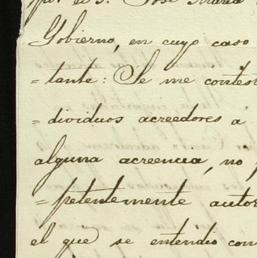 por el S. José María
Gobierno, en cuyo caso
=tante: Se me contest
=dividuos acreedores a
alguna acreencia, no p
=petentemente autor
el que se entendió con